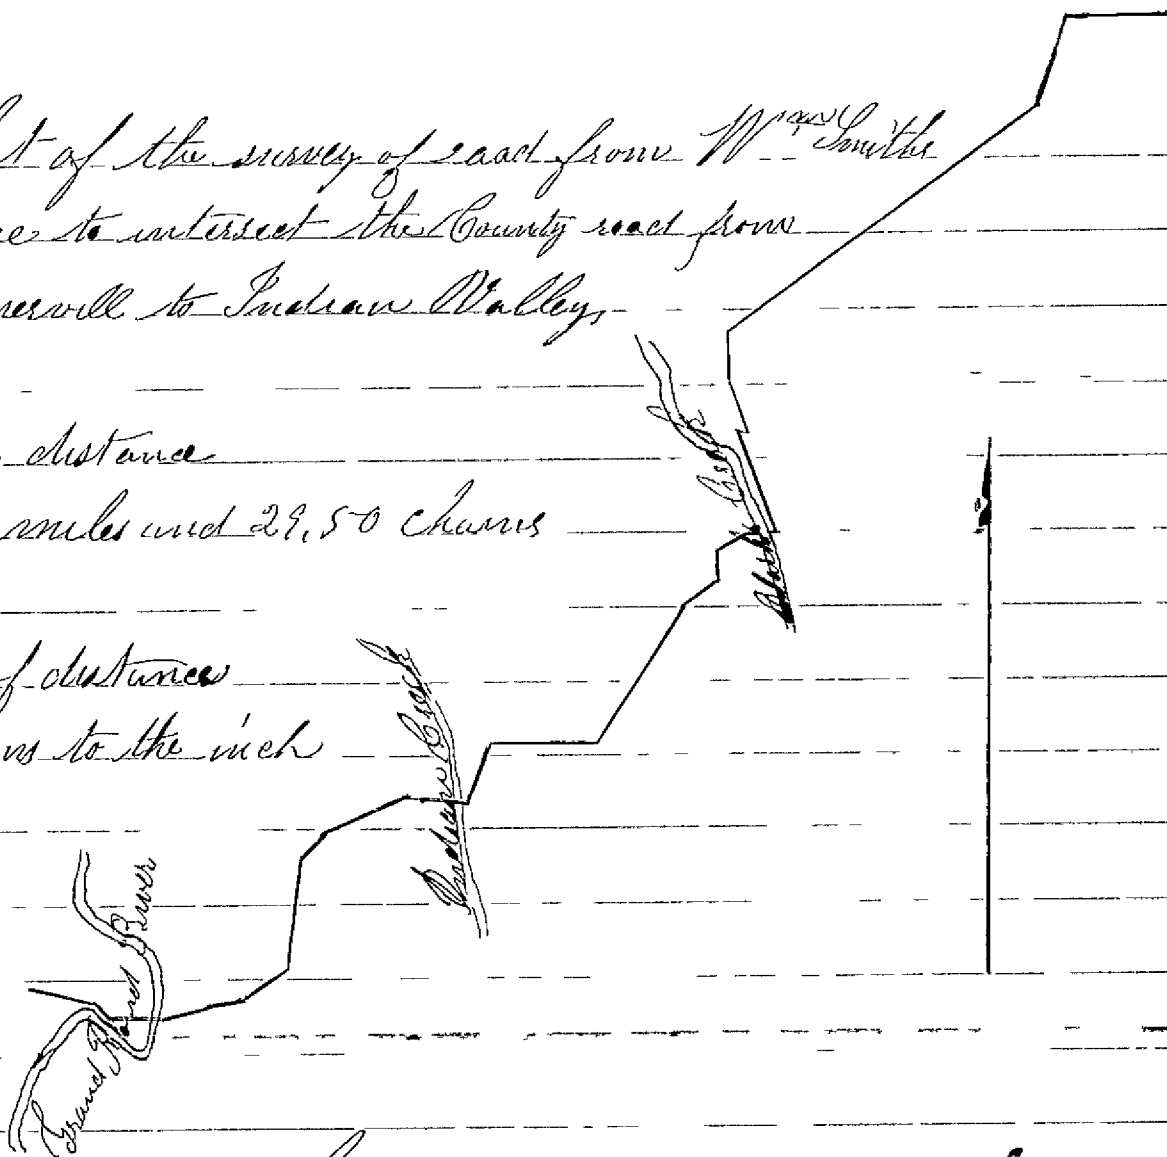 t of the survey of road from Wm Smiths
ce to intersect the County road from
nervill to Indian Valley,
distance
miles and 29,50 chains
f distance
ns to the inch
Clark Creek
Indian Creek
Grand Rond River